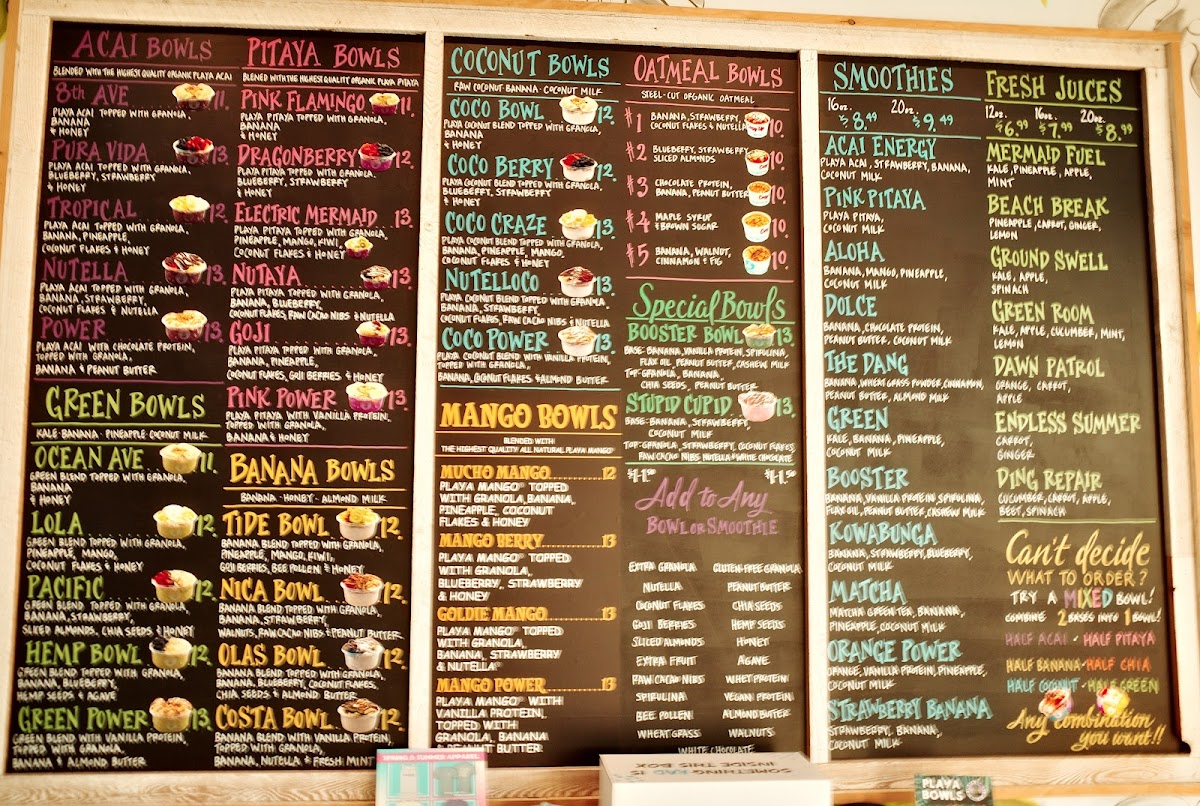 ACAI BOWLS
BLENDED WITH THE HIGHEST QUALITY ORGANIC PLAYA ACAI
8th AVE 11.
PLAYA ACAI TOPPED WITH GRANOLA,
BANANA
& HONEY
PURA VIDA 13.
PLAYA ACAI TOPPED WITH GRANOLA,
BLUEBERRY, STRAWBERRY
& HONEY
TROPICAL 12.
PLAYA ACAI TOPPED WITH GRANOLA,
BANANA, PINEAPPLE,
COCONUT FLAKES & HONEY
NUTELLA 13.
PLAYA ACAI TOPPED WITH GRANOLA,
BANANA, STRAWBERRY,
COCONUT FLAKES & NUTELLA
POWER 13.
PLAYA ACAI WITH CHOCOLATE PROTEIN,
TOPPED WITH GRANOLA,
BANANA & PEANUT BUTTER
GREEN BOWLS
KALE · BANANA · PINEAPPLE · COCONUT MILK
OCEAN AVE 11.
GREEN BLEND TOPPED WITH GRANOLA,
BANANA
& HONEY
LOLA 12.
GREEN BLEND TOPPED WITH GRANOLA,
PINEAPPLE, MANGO,
COCONUT FLAKES & HONEY
PACIFIC 12.
GREEN BLEND TOPPED WITH GRANOLA,
BANANA, STRAWBERRY,
SLICED ALMONDS, CHIA SEEDS & HONEY
HEMP BOWL 12.
GREEN BLEND TOPPED WITH GRANOLA,
BANANA, BLUEBERRY,
HEMP SEEDS & AGAVE
GREEN POWER 13.
GREEN BLEND WITH VANILLA PROTEIN,
TOPPED WITH GRANOLA,
BANANA & ALMOND BUTTER
PITAYA BOWLS
BLENDED WITH THE HIGHEST QUALITY ORGANIC PLAYA PITAYA
PINK FLAMINGO 11.
PLAYA PITAYA TOPPED WITH GRANOLA,
BANANA
& HONEY
DRAGONBERRY 12.
PLAYA PITAYA TOPPED WITH GRANOLA,
BLUEBERRY, STRAWBERRY
& HONEY
ELECTRIC MERMAID 13.
PLAYA PITAYA TOPPED WITH GRANOLA,
PINEAPPLE, MANGO, KIWI,
COCONUT FLAKES & HONEY
NUTAYA 13.
PLAYA PITAYA TOPPED WITH GRANOLA,
BANANA, BLUEBERRY,
COCONUT FLAKES, RAW CACAO NIBS & NUTELLA
GOJI 13.
PLAYA PITAYA TOPPED WITH GRANOLA,
BANANA, PINEAPPLE,
COCONUT FLAKES, GOJI BERRIES & HONEY
PINK POWER 13.
PLAYA PITAYA WITH VANILLA PROTEIN,
TOPPED WITH GRANOLA,
BANANA & HONEY
BANANA BOWLS
BANANA · HONEY · ALMOND MILK
TIDE BOWL 12.
BANANA BLEND TOPPED WITH GRANOLA,
PINEAPPLE, MANGO, KIWI,
GOJI BERRIES, BEE POLLEN & HONEY
NICA BOWL 12.
BANANA BLEND TOPPED WITH GRANOLA,
BANANA, STRAWBERRY,
WALNUTS, RAW CACAO NIBS & PEANUT BUTTER
OLAS BOWL 12.
BANANA BLEND TOPPED WITH GRANOLA,
BANANA, BLUEBERRY, COCONUT FLAKES,
CHIA SEEDS & ALMOND BUTTER
COSTA BOWL 12.
BANANA BLEND TOPPED WITH GRANOLA,
BANANA, NUTELLA & FRESH MINT
COCONUT BOWLS
RAW COCONUT · BANANA · COCONUT MILK
COCO BOWL 12.
PLAYA COCONUT BLEND TOPPED WITH GRANOLA,
BANANA
& HONEY
COCO BERRY 12.
PLAYA COCONUT BLEND TOPPED WITH GRANOLA,
BLUEBERRY, STRAWBERRY
& HONEY
COCO CRAZE 13.
PLAYA COCONUT BLEND TOPPED WITH GRANOLA,
BANANA, PINEAPPLE, MANGO,
COCONUT FLAKES & HONEY
NUTELLOCO 13.
PLAYA COCONUT BLEND TOPPED WITH GRANOLA,
BANANA, STRAWBERRY,
COCONUT FLAKES, RAW CACAO NIBS & NUTELLA
COCO POWER 13.
PLAYA COCONUT BLEND WITH VANILLA PROTEIN,
TOPPED WITH GRANOLA,
BANANA, COCONUT FLAKES & ALMOND BUTTER
MANGO BOWLS
BLENDED WITH
THE HIGHEST QUALITY ALL NATURAL PLAYA MANGO®
MUCHO MANGO 12
PLAYA MANGO® TOPPED
WITH GRANOLA, BANANA,
PINEAPPLE, COCONUT
FLAKES & HONEY
MANGO BERRY 13
PLAYA MANGO® TOPPED
WITH GRANOLA,
BLUEBERRY, STRAWBERRY
& HONEY
GOLDIE MANGO 13
PLAYA MANGO® TOPPED
WITH GRANOLA,
BANANA, STRAWBERRY
& NUTELLA®
MANGO POWER 13
PLAYA MANGO® WITH
VANILLA PROTEIN,
TOPPED WITH
GRANOLA, BANANA
& PEANUT BUTTER
OATMEAL BOWLS
STEEL-CUT ORGANIC OATMEAL
#1 BANANA, STRAWBERRY,
COCONUT FLAKES & NUTELLA 10.
#2 BLUEBERRY, STRAWBERRY,
SLICED ALMONDS 10.
#3 CHOCOLATE PROTEIN,
BANANA, PEANUT BUTTER 10.
#4 MAPLE SYRUP
& BROWN SUGAR 10.
#5 BANANA, WALNUT,
CINNAMON & FIG 10.
Special Bowls
BOOSTER BOWL 13.
BASE: BANANA, VANILLA PROTEIN, SPIRULINA,
FLAX OIL, PEANUT BUTTER, CASHEW MILK
TOP: GRANOLA, BANANA,
CHIA SEEDS, PEANUT BUTTER
STUPID CUPID 13.
BASE: BANANA, STRAWBERRY,
COCONUT MILK
TOP: GRANOLA, STRAWBERRY, COCONUT FLAKES,
RAW CACAO NIBS, NUTELLA & WHITE CHOCOLATE
Add to Any
BOWL OR SMOOTHIE
EXTRA GRANOLA GLUTEN-FREE GRANOLA
NUTELLA PEANUT BUTTER
COCONUT FLAKES CHIA SEEDS
GOJI BERRIES HEMP SEEDS
SLICED ALMONDS HONEY
EXTRA FRUIT AGAVE
RAW CACAO NIBS WHEY PROTEIN
SPIRULINA VEGAN PROTEIN
BEE POLLEN ALMOND BUTTER
WHEAT GRASS WALNUTS
WHITE CHOCOLATE
SMOOTHIES
16oz. 20oz.
$8.49 $9.49
ACAI ENERGY
PLAYA ACAI, STRAWBERRY, BANANA,
COCONUT MILK
PINK PITAYA
PLAYA PITAYA,
COCONUT MILK
ALOHA
BANANA, MANGO, PINEAPPLE,
COCONUT MILK
DOLCE
BANANA, CHOCOLATE PROTEIN,
PEANUT BUTTER, COCONUT MILK
THE DANG
BANANA, WHEAT GRASS POWDER, CINNAMON,
PEANUT BUTTER, ALMOND MILK
GREEN
KALE, BANANA, PINEAPPLE,
COCONUT MILK
BOOSTER
BANANA, VANILLA PROTEIN, SPIRULINA,
FLAX OIL, PEANUT BUTTER, CASHEW MILK
KOWABUNGA
BANANA, STRAWBERRY, BLUEBERRY,
COCONUT MILK
MATCHA
MATCHA GREEN TEA, BANANA,
PINEAPPLE, COCONUT MILK
ORANGE POWER
ORANGE, VANILLA PROTEIN, PINEAPPLE,
COCONUT MILK
STRAWBERRY BANANA
STRAWBERRY, BANANA,
COCONUT MILK
FRESH JUICES
12oz. 16oz. 20oz.
$6.99 $7.99 $8.99
MERMAID FUEL
KALE, PINEAPPLE, APPLE,
MINT
BEACH BREAK
PINEAPPLE, CARROT, GINGER,
LEMON
GROUND SWELL
KALE, APPLE,
SPINACH
GREEN ROOM
KALE, APPLE, CUCUMBER, MINT,
LEMON
DAWN PATROL
ORANGE, CARROT,
APPLE
ENDLESS SUMMER
CARROT,
GINGER
DING REPAIR
CUCUMBER, CARROT, APPLE,
BEET, SPINACH
Can't decide
WHAT TO ORDER?
TRY A MIXED BOWL!
COMBINE 2 BASES INTO 1 BOWL!
HALF ACAI · HALF PITAYA
HALF BANANA · HALF CHIA
HALF COCONUT · HALF GREEN
Any Combination
you want!!
SPRING & SUMMER APPAREL
SOMETHING RAD IS
INSIDE THIS BOX
PLAYA
BOWLS